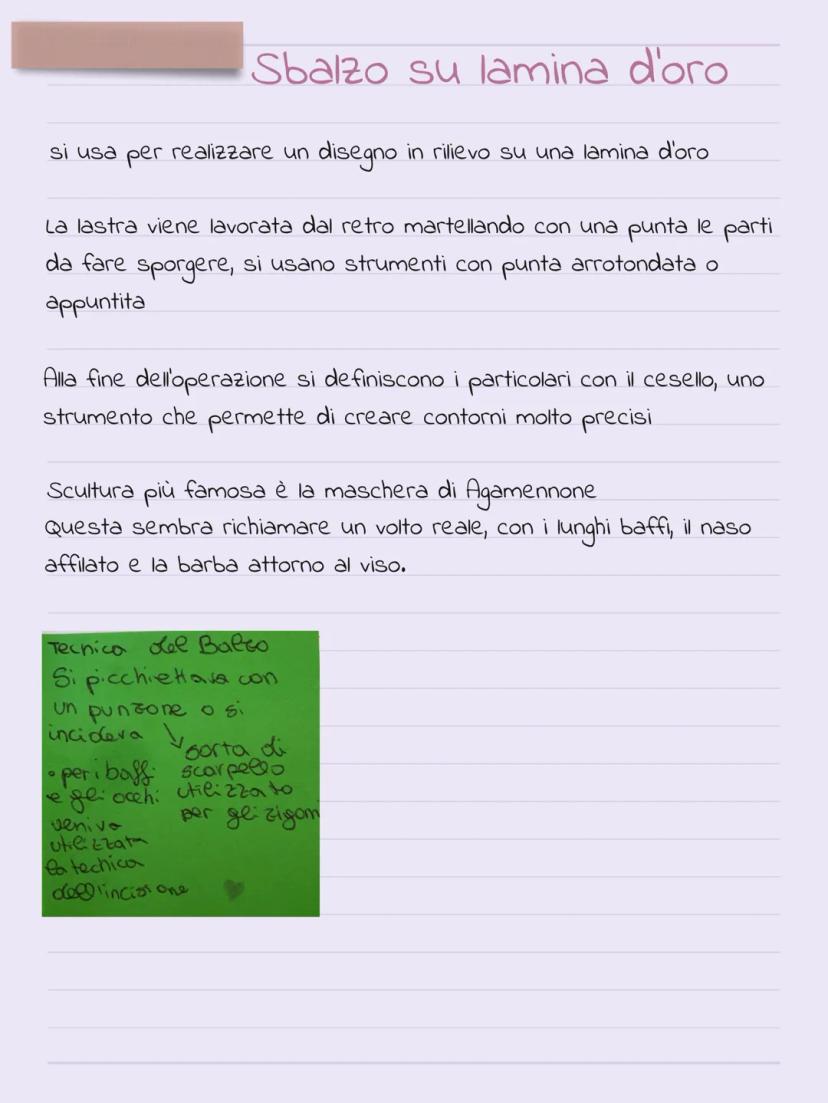 Sbalzo su lamina d'oro
si usa per realizzare un disegno in rilievo su una lamina d'oro
La lastra viene lavorata dal retro martellando con una punta le parti
da fare sporgere, si usano strumenti con punta arrotondata o
appuntita
Alla fine dell'operazione si definiscono i particolari con il cesello, uno
strumento che permette di creare contorni molto precisi
Scultura più famosa è la maschera di Agamennone
Questa sembra richiamare un volto reale, con i lunghi baffi, il naso
affilato e la barba attorno al viso.
Tecnica del Balzo
Si picchiettava con
un punzone o si
incideva
sorta di
scarpello
utilizzato
per gli zigom
• per i baffi
e gli occhi
veniva
utilizzata
la technica
dell'incisione